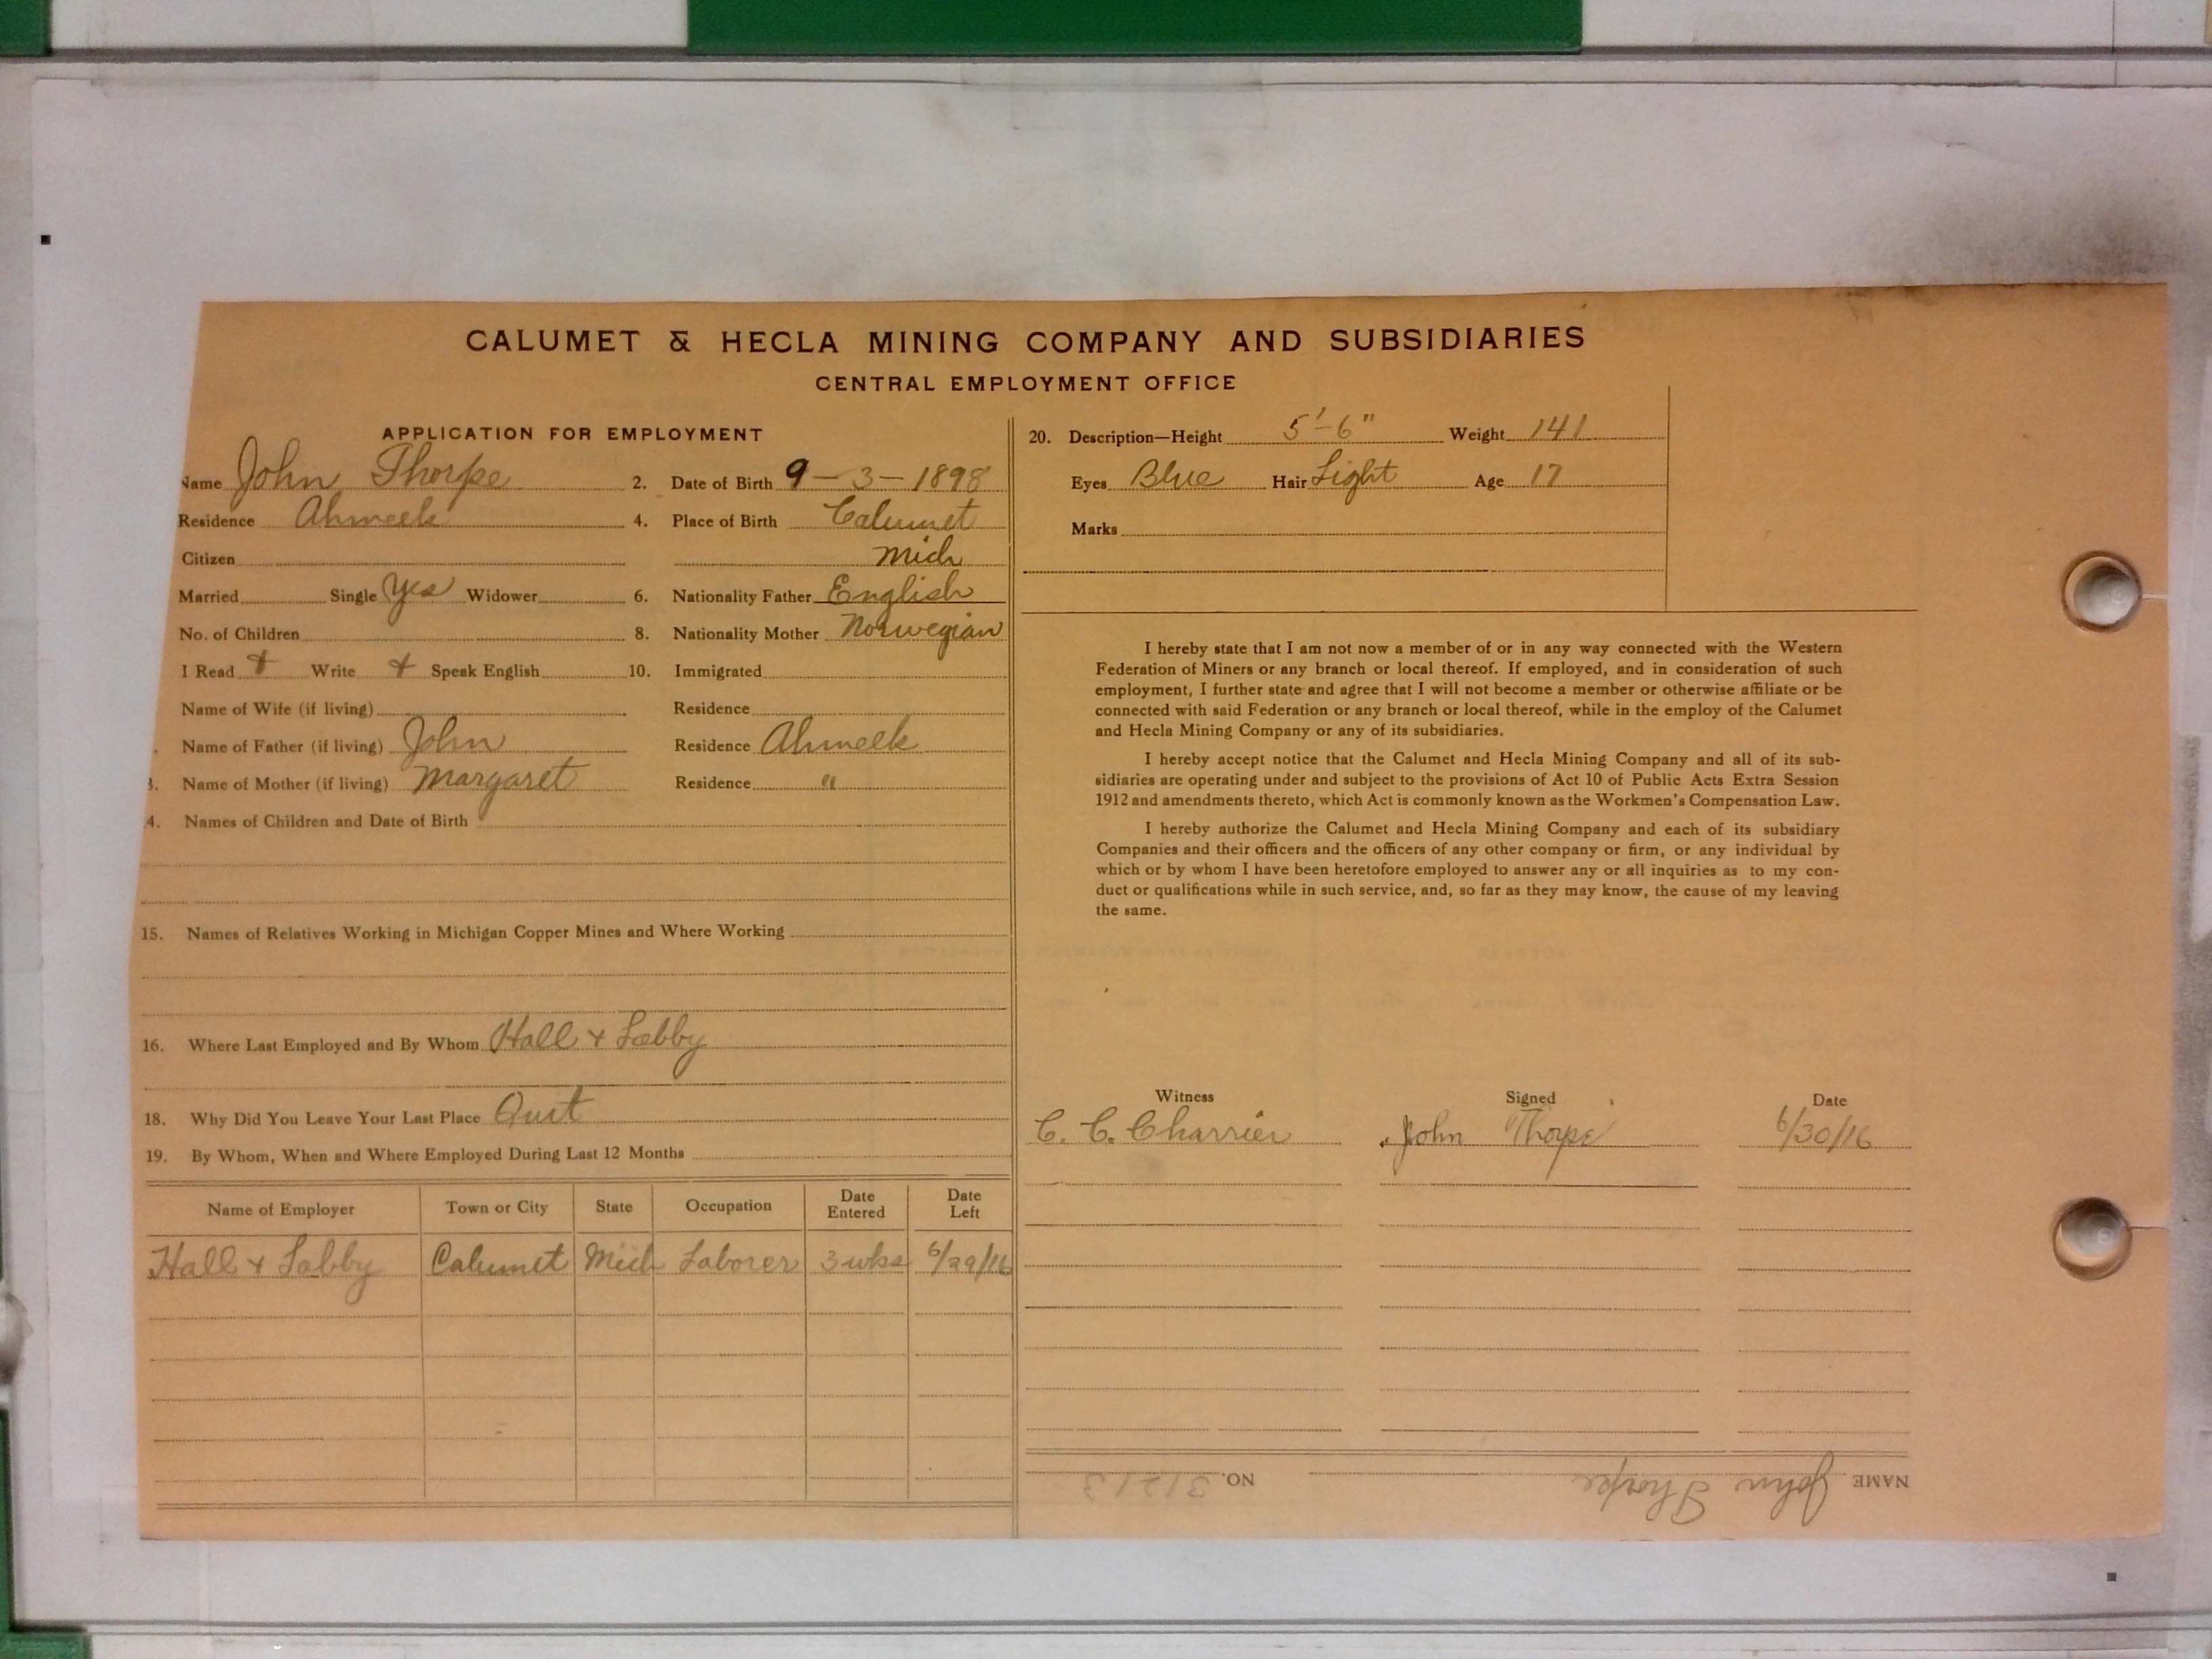 CALUMET & HECLA MINING COMPANY AND SUBSIDIARIES
CENTRAL EMPLOYMENT OFFICE
APPLICATION FOR EMPLOYMENT
Name John Thorpe 2. Date of Birth 9-3-1898
Residence Ahmeek 4. Place of Birth Calumet
Citizen Mich
Married Single Yes Widower 6. Nationality Father English
No. of Children 8. Nationality Mother Norwegian
I Read + Write + Speak English 10. Immigrated
Name of Wife (if living) Residence
Name of Father (if living) John Residence Ahmeek
3. Name of Mother (if living) Margaret Residence "
4. Names of Children and Date of Birth
15. Names of Relatives Working in Michigan Copper Mines and Where Working
16. Where Last Employed and By Whom Hall + Labby
18. Why Did You Leave Your Last Place Quit
19. By Whom, When and Where Employed During Last 12 Months
Name of Employer Town or City State Occupation Date Entered Date Left
Hall + Labby Calumet Mich Laborer 3 wks 6/29/16
20. Description—Height 5'-6" Weight 141
Eyes Blue Hair Light Age 17
Marks
I hereby state that I am not now a member of or in any way connected with the Western
Federation of Miners or any branch or local thereof. If employed, and in consideration of such
employment, I further state and agree that I will not become a member or otherwise affiliate or be
connected with said Federation or any branch or local thereof, while in the employ of the Calumet
and Hecla Mining Company or any of its subsidiaries.
I hereby accept notice that the Calumet and Hecla Mining Company and all of its sub-
sidiaries are operating under and subject to the provisions of Act 10 of Public Acts Extra Session
1912 and amendments thereto, which Act is commonly known as the Workmen's Compensation Law.
I hereby authorize the Calumet and Hecla Mining Company and each of its subsidiary
Companies and their officers and the officers of any other company or firm, or any individual by
which or by whom I have been heretofore employed to answer any or all inquiries as to my con-
duct or qualifications while in such service, and, so far as they may know, the cause of my leaving
the same.
Witness Signed Date
C. C. Charrier John Thorpe 6/30/16
NAME John Thorpe NO. 31213